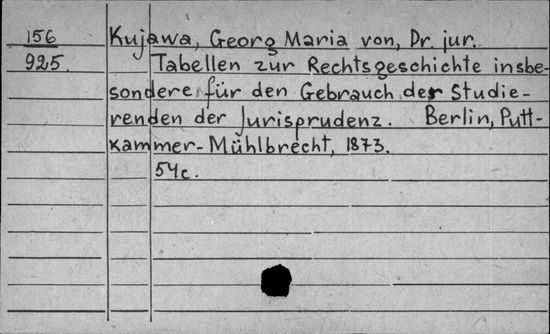 156 Kujawa, Georg Maria von, Dr. jur.
925. Tabellen zur Rechtsgeschichte insbe-
sondere für den Gebrauch der Studie-
renden der Jurisprudenz. Berlin, Putt-
kammer-Mühlbrecht, 1873.
54c.